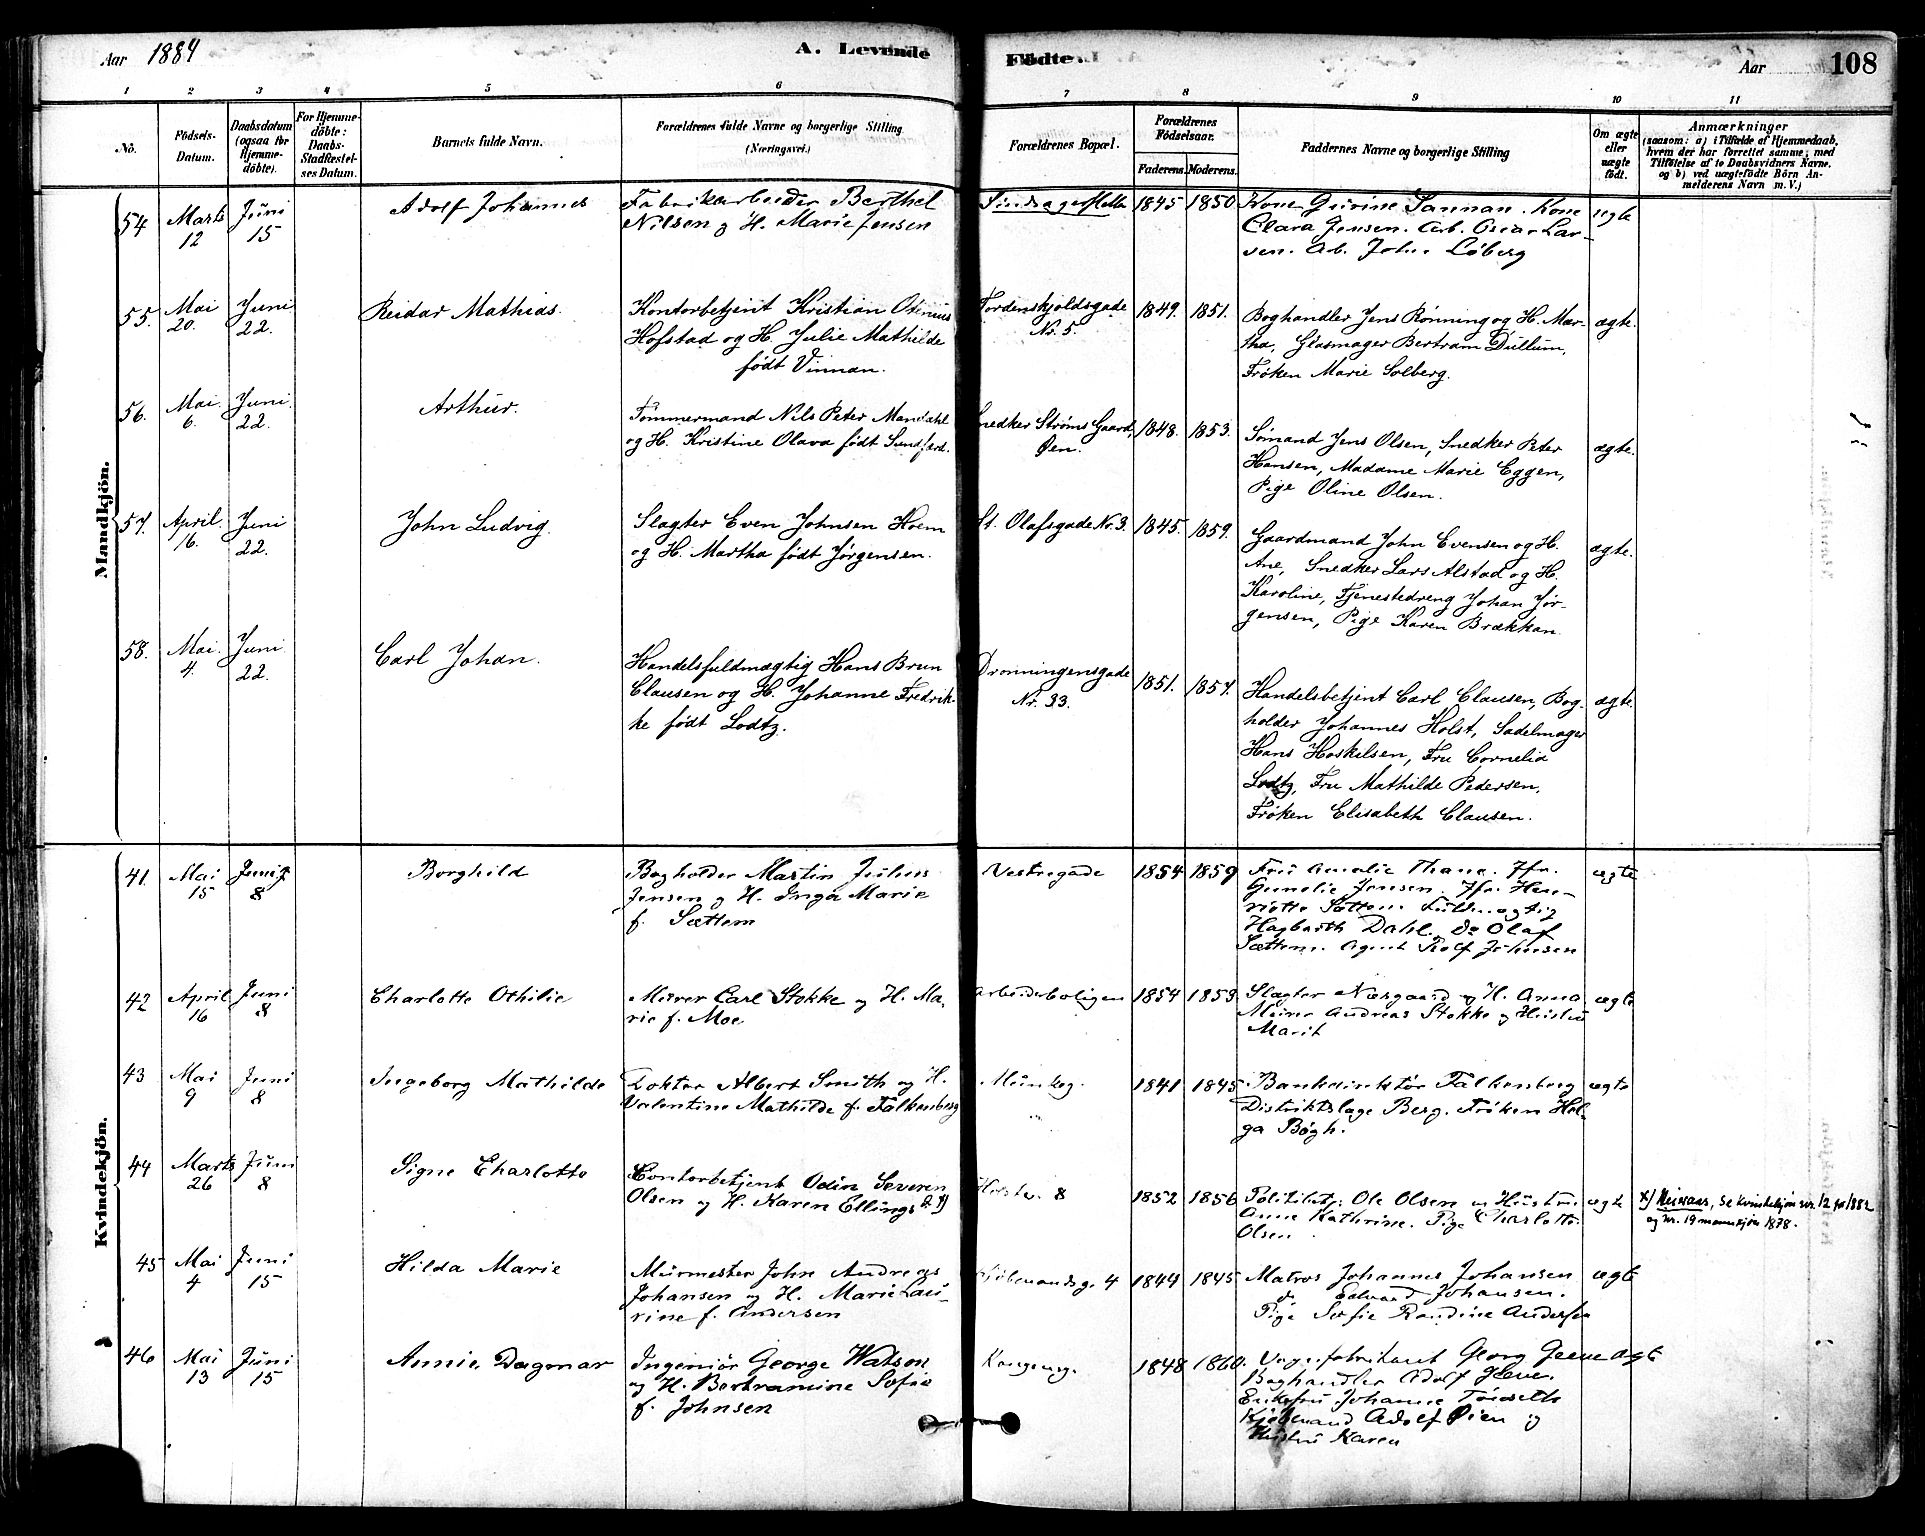 Aar 1884 A. Levende
Födte. Aar 108
1 2 3 4 5 6
7 8 9 10 11
No.
Födsels-Datum.
Daabsdatum (ogsaa for Hjemme-döbte).
For Hjemme-döbte: Daabs-Stadfæstel-ses Datum.
Barnets fulde Navn.
Forældrenes fulde Navne og borgerlige Stilling (Næringsvei.)
Forældrenes Bopæl.
Forældrenes Födselsaar.
Faderens. Moderens.
Faddernes Navne og borgerlige Stilling
Om ægte eller uægte födt.
Anmærkninger
(saasom: a) i Tilfælde af Hjemmedaab,
hvem der har forrettet samme, med
Tilföielse af to Daabsvidners Navne,
og b) ved uægtefödte Börn An-
melderens Navn m. V.)
Mandkjön.
54 Marts 12 Juni 15
Adolf Johannes
Fabrikarbeider Berthel
Nilsen og H. Marie Jensen
1845 1850
Kone Gurine Sannan. Kone
Clara Jensen. Arb. Oscar Lar-
sen. Arb. John Löberg
ægte
55. Mai 20. Juni 22.
Reidar Mathias.
Kontorbetjent Kristian Otinius
Hofstad og H. Julie Mathilde
født Vinnan.
Tordenskjoldsgade
Nr. 5.
1849. 1851.
Boghandler Jens Rönning og H. Mar-
tha, Glasmager Bertram Dullum,
Frøken Marie Solberg.
ægte.
56. Mai 6. Juni 22.
Arthur.
Tømmermand Nils Peter Mandahl
og H. Kristine Olava født Sundferd.
Snedker Strøms Gaard,
Øen.
1848. 1853.
Sømand Jens Olsen, Snedker Peter
Hansen, Madame Marie Eggen,
Pige Oline Olsen.
ægte.
57. April 16. Juni 22.
John Ludvig.
Slagter Even Johnsen Hoem
og H. Martha født Jørgensen.
St. Olafsgade Nr. 3.
1845. 1859.
Gaardmand John Evensen og H.
Ane, Snedker Lars Alstad og H.
Karoline, Tjenestedreng Johan Jør-
gensen, Pige Karen Brækkan.
ægte.
58. Mai 4. Juni 22.
Carl Johan.
Handelsfuldmægtig Hans Brun
Clausen og H. Johanne Fredrik-
ke født Lodtz.
Dronningensgade
Nr. 33.
1851. 1857.
Handelsbetjent Carl Clausen, Bog-
holder Johannes Holst, Sadelmager
Hans Hoskelsen, Fru Cornelia
Lodtz, Fru Mathilde Pedersen,
Frøken Elisabeth Clausen.
ægte.
Kvindekjön.
41. Mai 15 Juni 8
Borghild
Bogholder Martin Julius
Jensen og H. Inga Marie
f. Sættem
Vestregade
1854 1859
Fru Amalie Thane. Jfr.
Gunelie Jensen. Jfr. Hen-
riette Sættem Fuldmægtig
Hagbarth Dahl. do Olaf
Sættem. Agent Rolf Johnsen
ægte
42 April 16 Juni 8
Charlotte Othilie
Murer Carl Stokke og H. Ma-
rie f. Moe
Arbeiderboligen
1854 1859.
Slagter Næsgaard og H. Anna
Murer Andreas Stokke og Hustru
Marit
ægte
43 Mai 9 Juni 8
Ingeborg Mathilde
Doktor Albert Smith og H.
Valentine Mathilde f. Falkenberg
Munkeg.
1841 1845
Bankdirektör Falkenberg
Distriktslæge Berg. Fröken Hel-
ga Bögh.
ægte
44 Marts 26 Juni 8
Signe Charlotte
Contorbetjent Odin Severin
Olsen og H. Karen Ellingsd. x)
8
1852 1856
Politibetj: Ole Olsen og Hustru
Anne Kathrine. Pige Charlotte
Olsen
ægte
x) se kvindekjøn nr. 12 for 1882
og nr. 19 mannkjøn 1878.
45 Mai 4 Juni 15
Hilda Marie
Murmester John Andreas
Johansen og H. Marie Lau-
rine f. Andersen
Kjöbmandsg. 4
1844 1845
Matros Johannes Johansen
do Edvard Johansen.
Pige Sofie Randine Andersen
ægte
46 Mai 13 Juni 15
Annie Dagmar
Ingeniör George Watson
og H. Bertramine Sofie
f. Johnsen
Kongensg.
1848 1860.
Vognfabrikant Georg Gleve
Boghandler Adolf Gleve.
Enkefru Johanne Tönseth
Kjöbmand Adolf Öien og
Hustru Karen
ægte